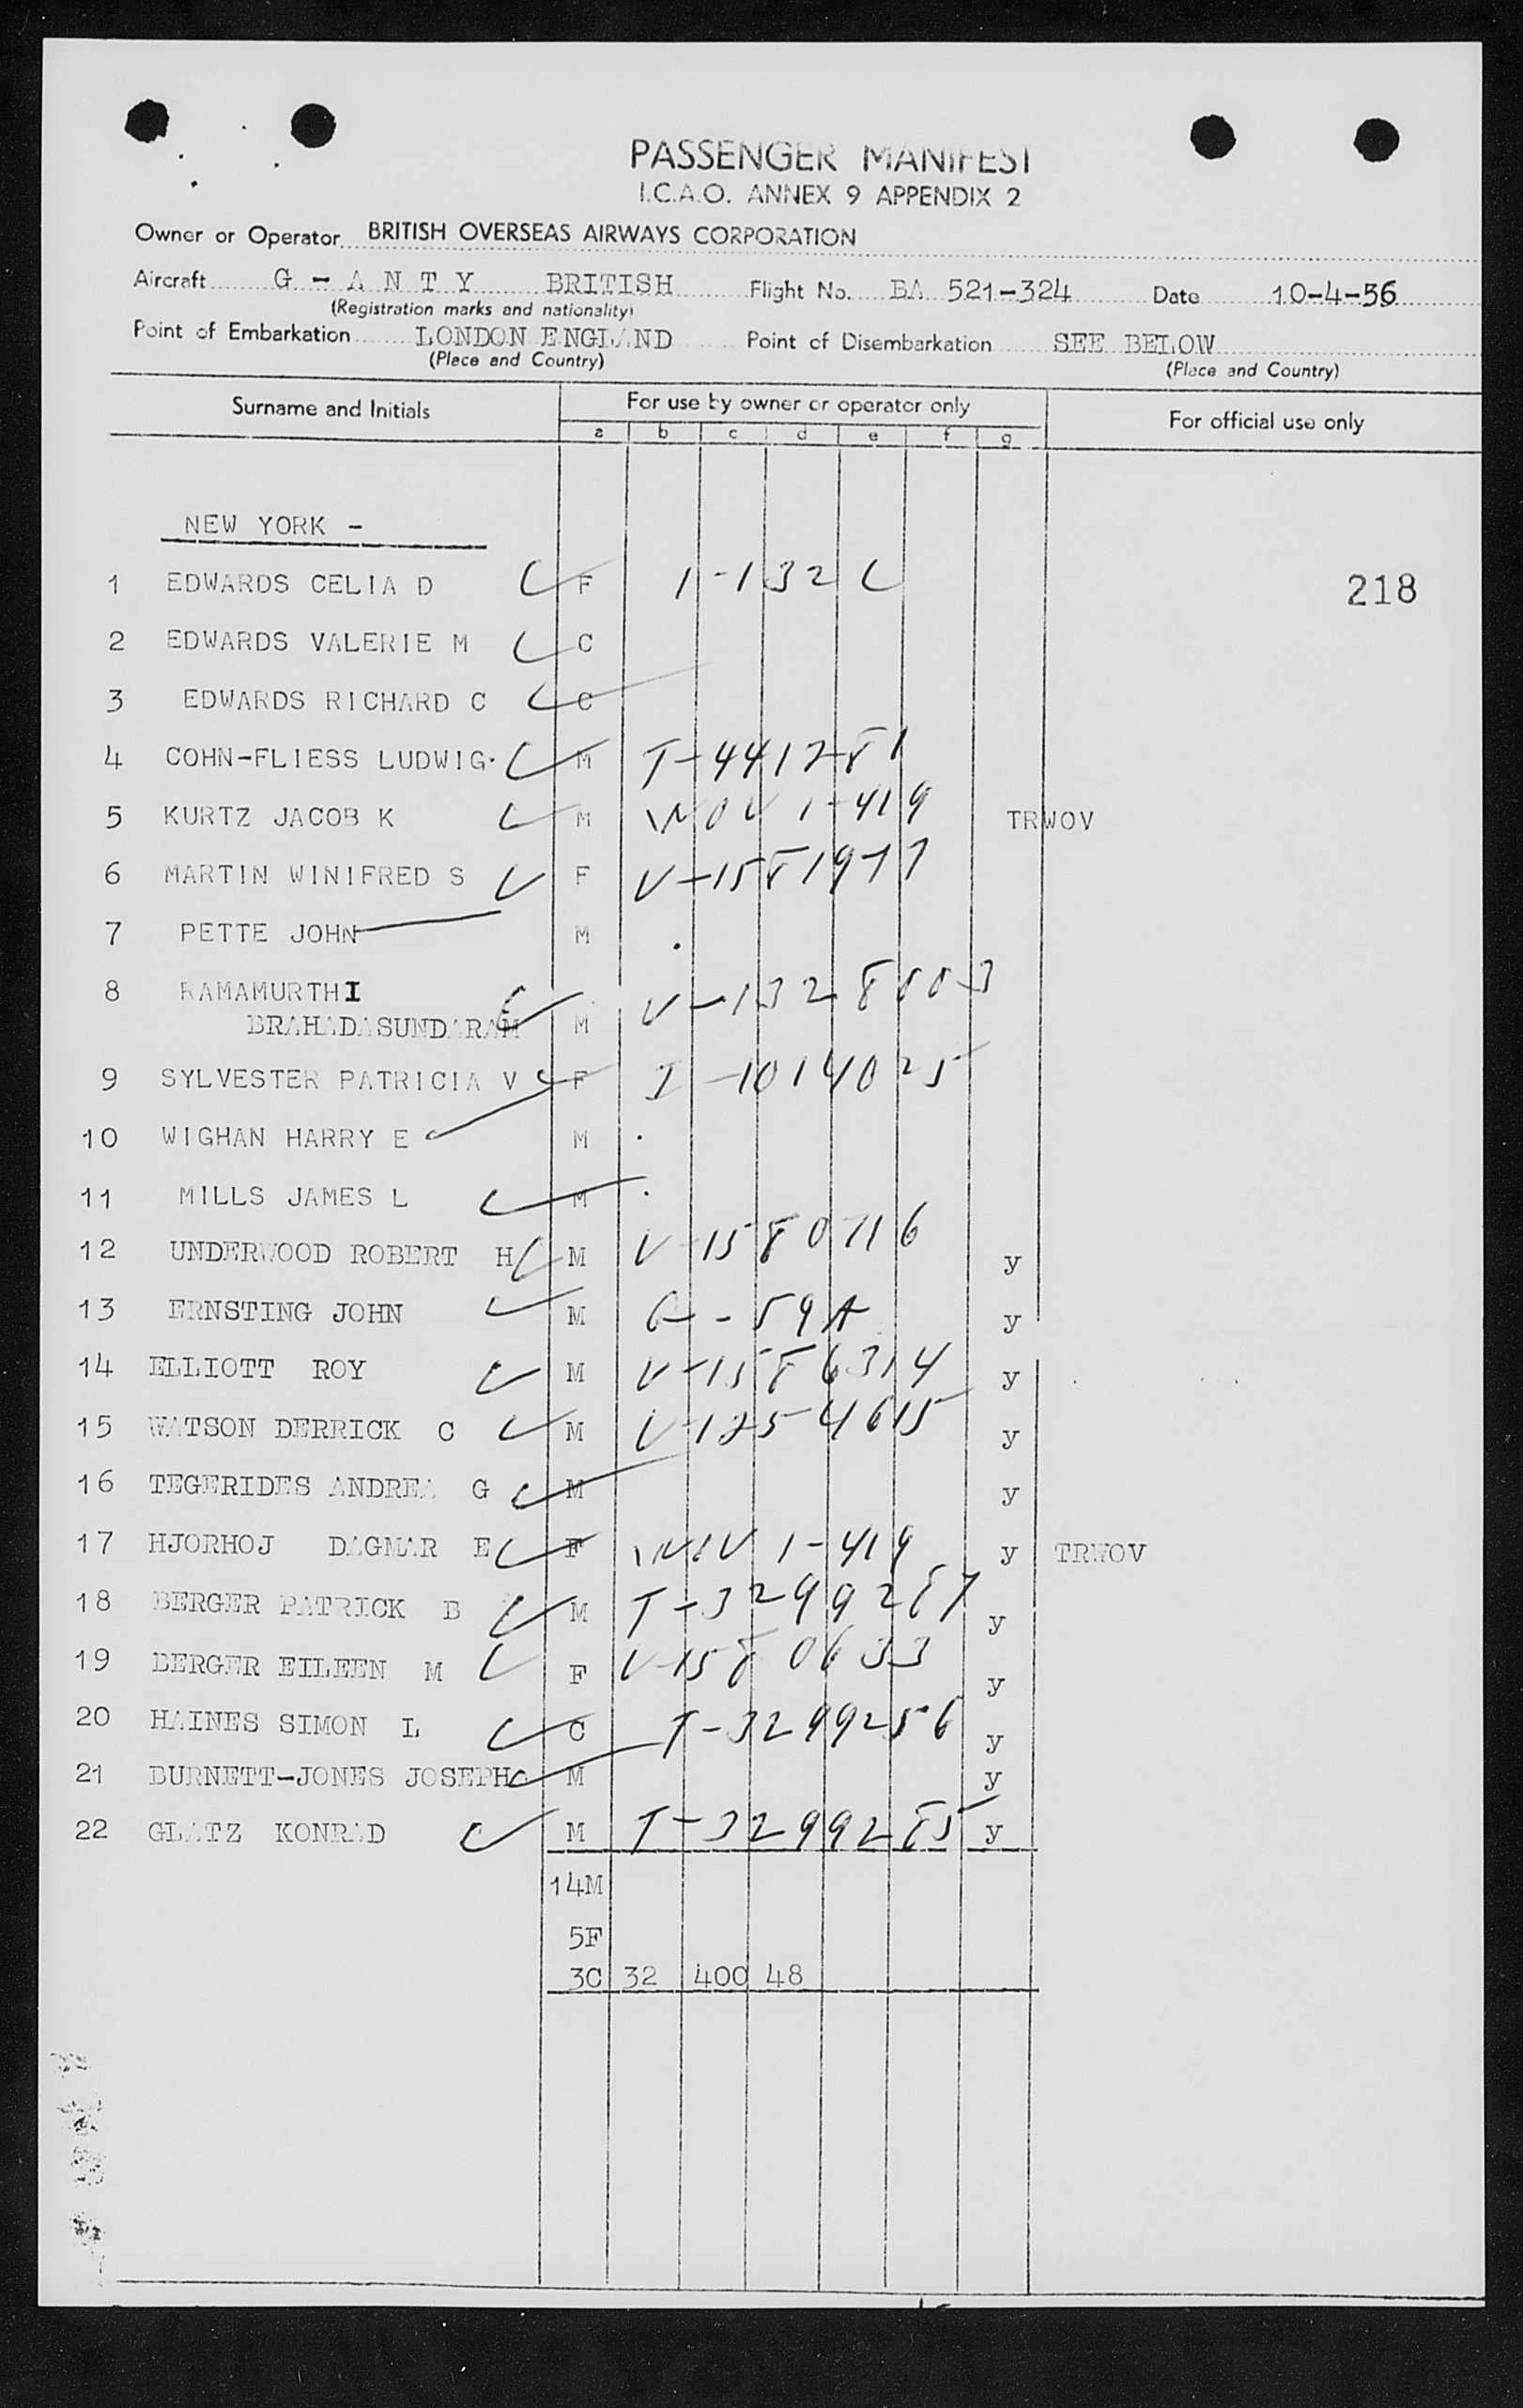 PASSENGER MANIFEST
I.C.A.O. ANNEX 9 APPENDIX 2
Owner or Operator BRITISH OVERSEAS AIRWAYS CORPORATION
Aircraft G - A N T Y BRITISH Flight No. BA 521-324 Date 10-4-56
(Registration marks and nationality)
Point of Embarkation LONDON ENGLAND Point of Disembarkation SEE BELOW
(Place and Country) (Place and Country)
Surname and Initials For use by owner or operator only For official use only
a b c d e f g
NEW YORK -
1 EDWARDS CELIA D F 1-132 C 218
2 EDWARDS VALERIE M C
3 EDWARDS RICHARD C C
4 COHN-FLIESS LUDWIG M T-4412-81
5 KURTZ JACOB K M WOV 1-419 TRWOV
6 MARTIN WINIFRED S F V-1581977
7 PETTE JOHN M
8 RAMAMURTHI
BRAHADASUNDARAM M V-1328003
9 SYLVESTER PATRICIA V F I-1014025
10 WIGHAN HARRY E M
11 MILLS JAMES L M
12 UNDERWOOD ROBERT H M V-1580716 y
13 ERNSTING JOHN M G--59A y
14 ELLIOTT ROY M V-1586314 y
15 WATSON DERRICK C M V-1254615 y
16 TEGERIDES ANDREA G M y
17 HJORHOJ DAGMAR E F WOV 1-419 y TRWOV
18 BERGER PATRICK B M T-3299287 y
19 BERGER EILEEN M F V-1580633 y
20 HAINES SIMON L C T-3299256 y
21 BURNETT-JONES JOSEPH M y
22 GLATZ KONRAD M T-3299285 y
14M
5F
3C 32 400 48